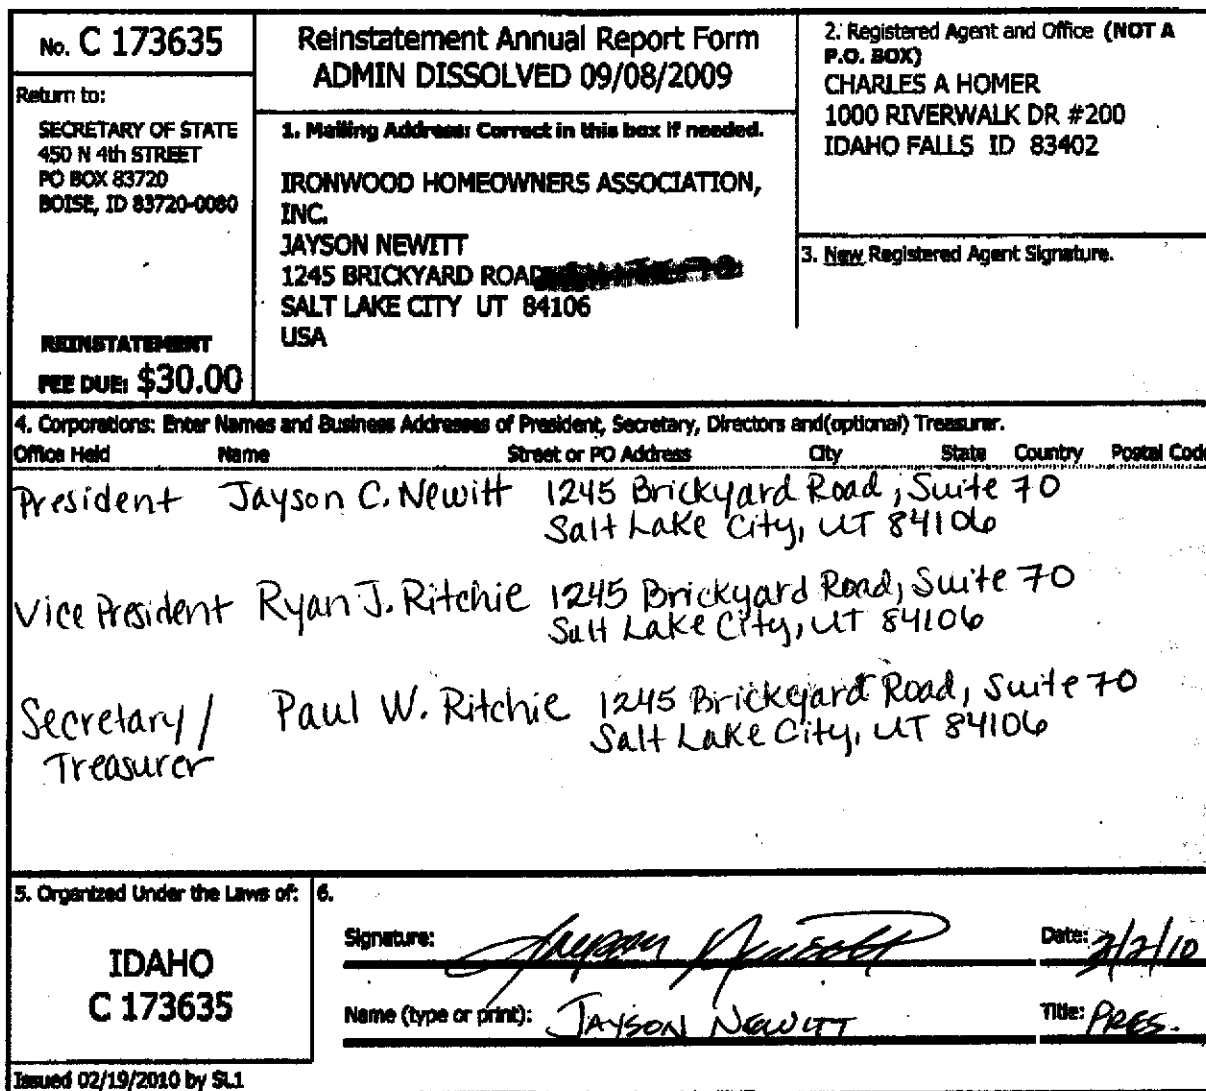 No. C 173635
Return to:
SECRETARY OF STATE
450 N 4th STREET
PO BOX 83720
BOISE, ID 83720-0080
REINSTATEMENT
FEE DUE: $30.00
Reinstatement Annual Report Form
ADMIN DISSOLVED 09/08/2009
1. Mailing Address: Correct in this box if needed.
IRONWOOD HOMEOWNERS ASSOCIATION,
INC.
JAYSON NEWITT
1245 BRICKYARD ROAD
SALT LAKE CITY UT 84106
USA
2. Registered Agent and Office (NOT A
P.O. BOX)
CHARLES A HOMER
1000 RIVERWALK DR #200
IDAHO FALLS ID 83402
3. New Registered Agent Signature.
4. Corporations: Enter Names and Business Addresses of President, Secretary, Directors and(optional) Treasurer.
Office Held Name Street or PO Address City State Country Postal Code
President Jayson C. Newitt 1245 Brickyard Road, Suite 70
Salt Lake City, UT 84106
Vice President Ryan J. Ritchie 1245 Brickyard Road, Suite 70
Salt Lake City, UT 84106
Secretary / Paul W. Ritchie 1245 Brickyard Road, Suite 70
Treasurer Salt Lake City, UT 84106
5. Organized Under the Laws of:
IDAHO
C 173635
6.
Signature: Jayson Newitt Date:
Name (type or print): JAYSON NEWITT Title: PRES.
Issued 02/19/2010 by SL1